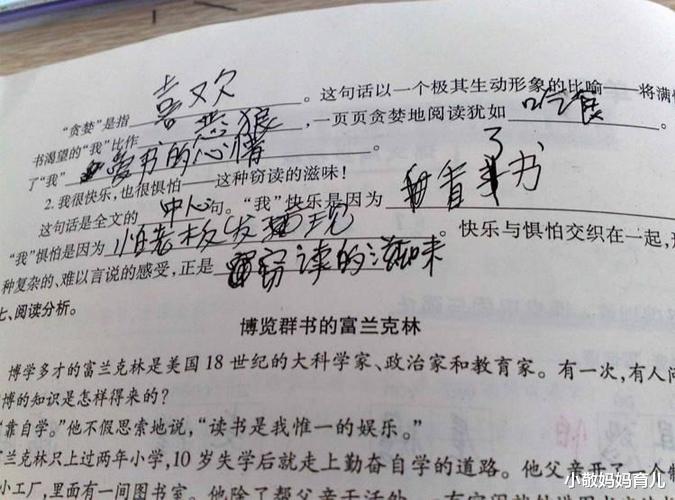 “贪婪”是指 喜欢 。这句话以一个极其生动形象的比喻——将满
书渴望的“我”比作 恶狼 ,一页页贪婪地阅读犹如 吃食 。
了“我” 爱书的心情 。
2.我很快乐,也很惧怕——这种窃读的滋味!
这句话是全文的 中心 句。“我”快乐是因为 看了书
“我”惧怕是因为 怕老板发现 。快乐与惧怕交织在一起,
种复杂的、难以言说的感受,正是 窃读的滋味
七、阅读分析。
博览群书的富兰克林
博学多才的富兰克林是美国18世纪的大科学家、政治家和教育家。有一次,有人
博的知识是怎样得来的?
“靠自学。”他不假思索地说,“读书是我惟一的娱乐。”
兰克林只上过两年小学,10岁失学后就走上勤奋自学的道路。他父亲开了一个
小工厂,里面有一间图书室。他除了帮父亲干活外
小敬妈妈育儿